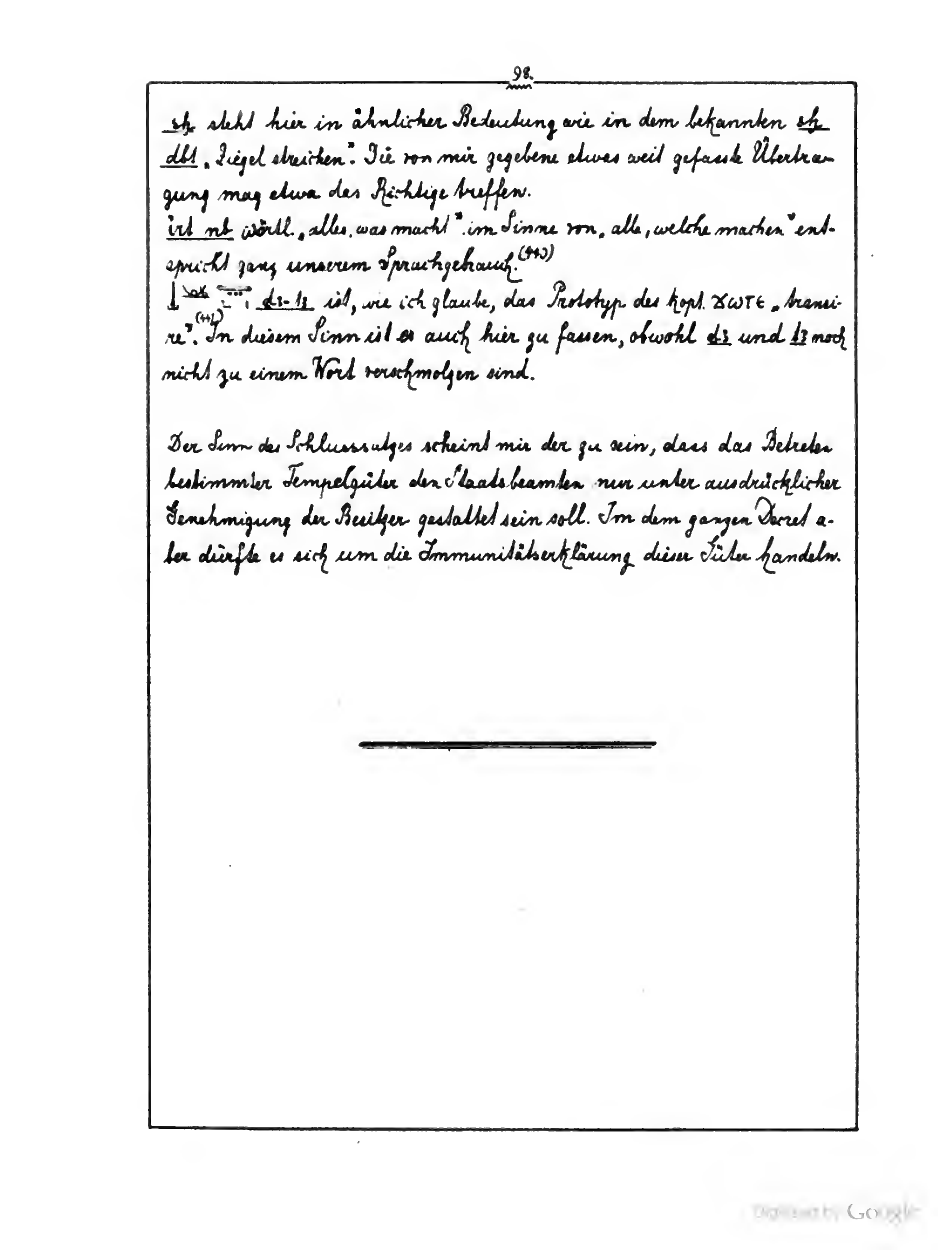 98.
sḫ steht hier in ähnlicher Bedeutung wie in dem bekannten sḫ
dbt „Ziegel streichen“. Die von mir gegebene etwas weit gefasste Übertra-
gung mag etwa das Richtige treffen.
irt nb wörtl. „alles, was macht“ im Sinne von „alle, welche machen“ ent-
spricht ganz unserem Sprachgebrauch.(440)
ḏ3-t3 ist, wie ich glaube, das Prototyp des kopt. ϫωτε „transi-
re“.(441) In diesem Sinn ist es auch hier zu fassen, obwohl ḏ3 und t3 noch
nicht zu einem Wort verschmolzen sind.
Der Sinn des Schlusssatzes scheint mir der zu sein, dass das Betreten
bestimmter Tempelgüter den Staatsbeamten nur unter ausdrücklicher
Genehmigung der Besitzer gestattet sein soll. Im dem ganzen Decret a-
ber dürfte es sich um die Immunitätserklärung dieser Güter handeln.
Digitized by Google